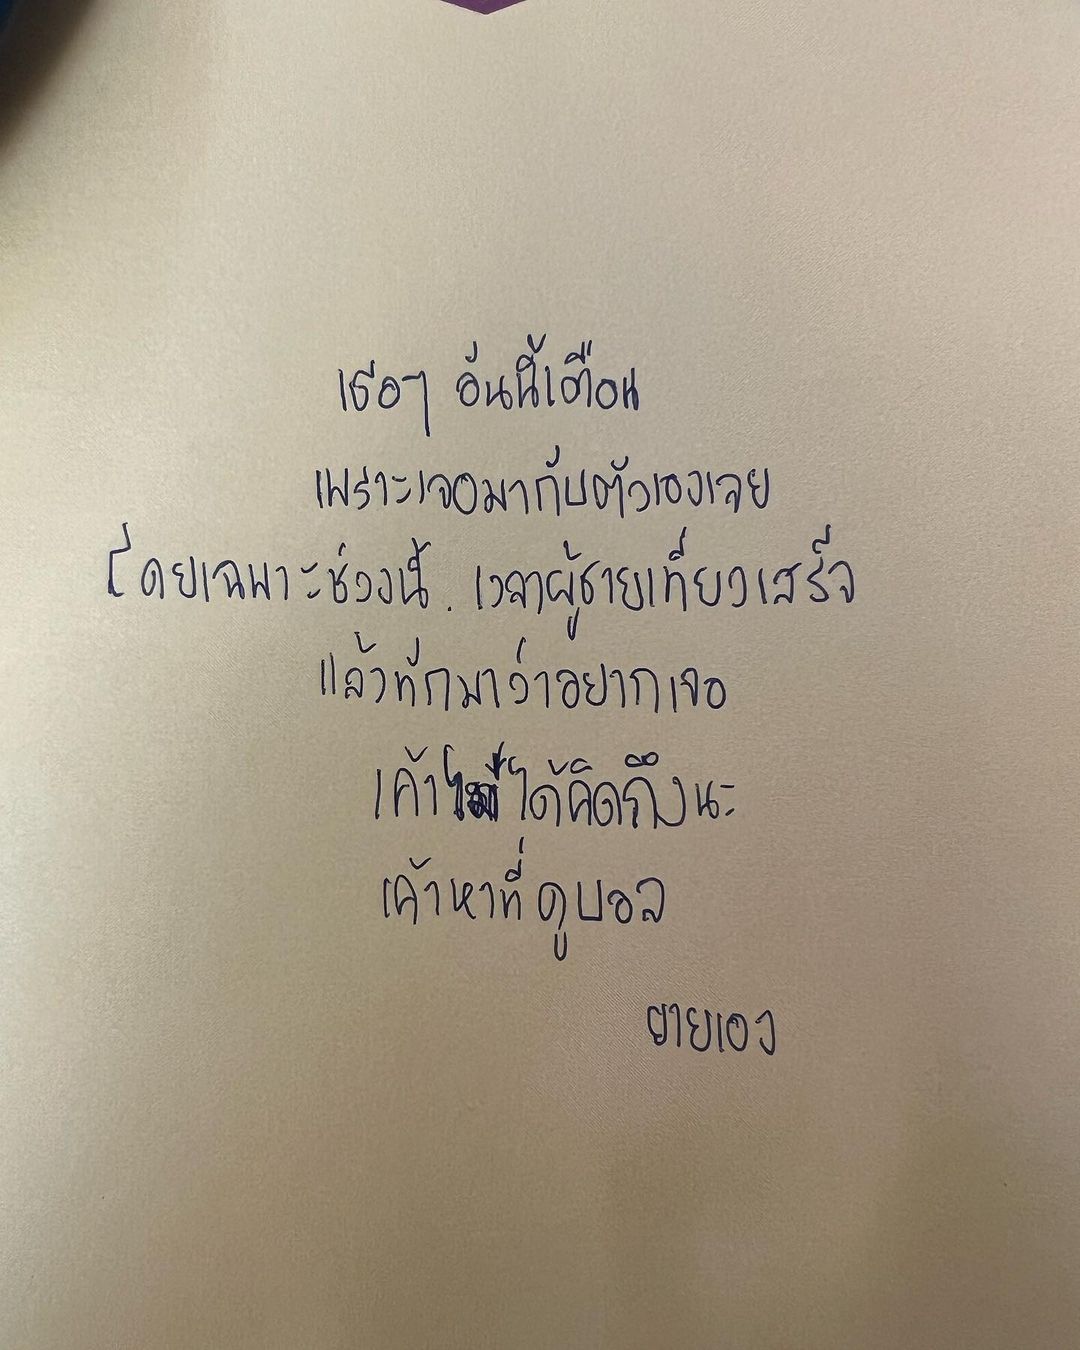 เธอๆ อันนี้เตือน
เพราะเจอมากับตัวเองเลย
โดยเฉพาะช่วงนี้. เวลาผู้ชายเที่ยวเสร็จ
แล้วทักมาว่าอยากเจอ
เค้าไม่ได้คิดถึงนะ
เค้าหาที่ดูบอล
ยายเอง